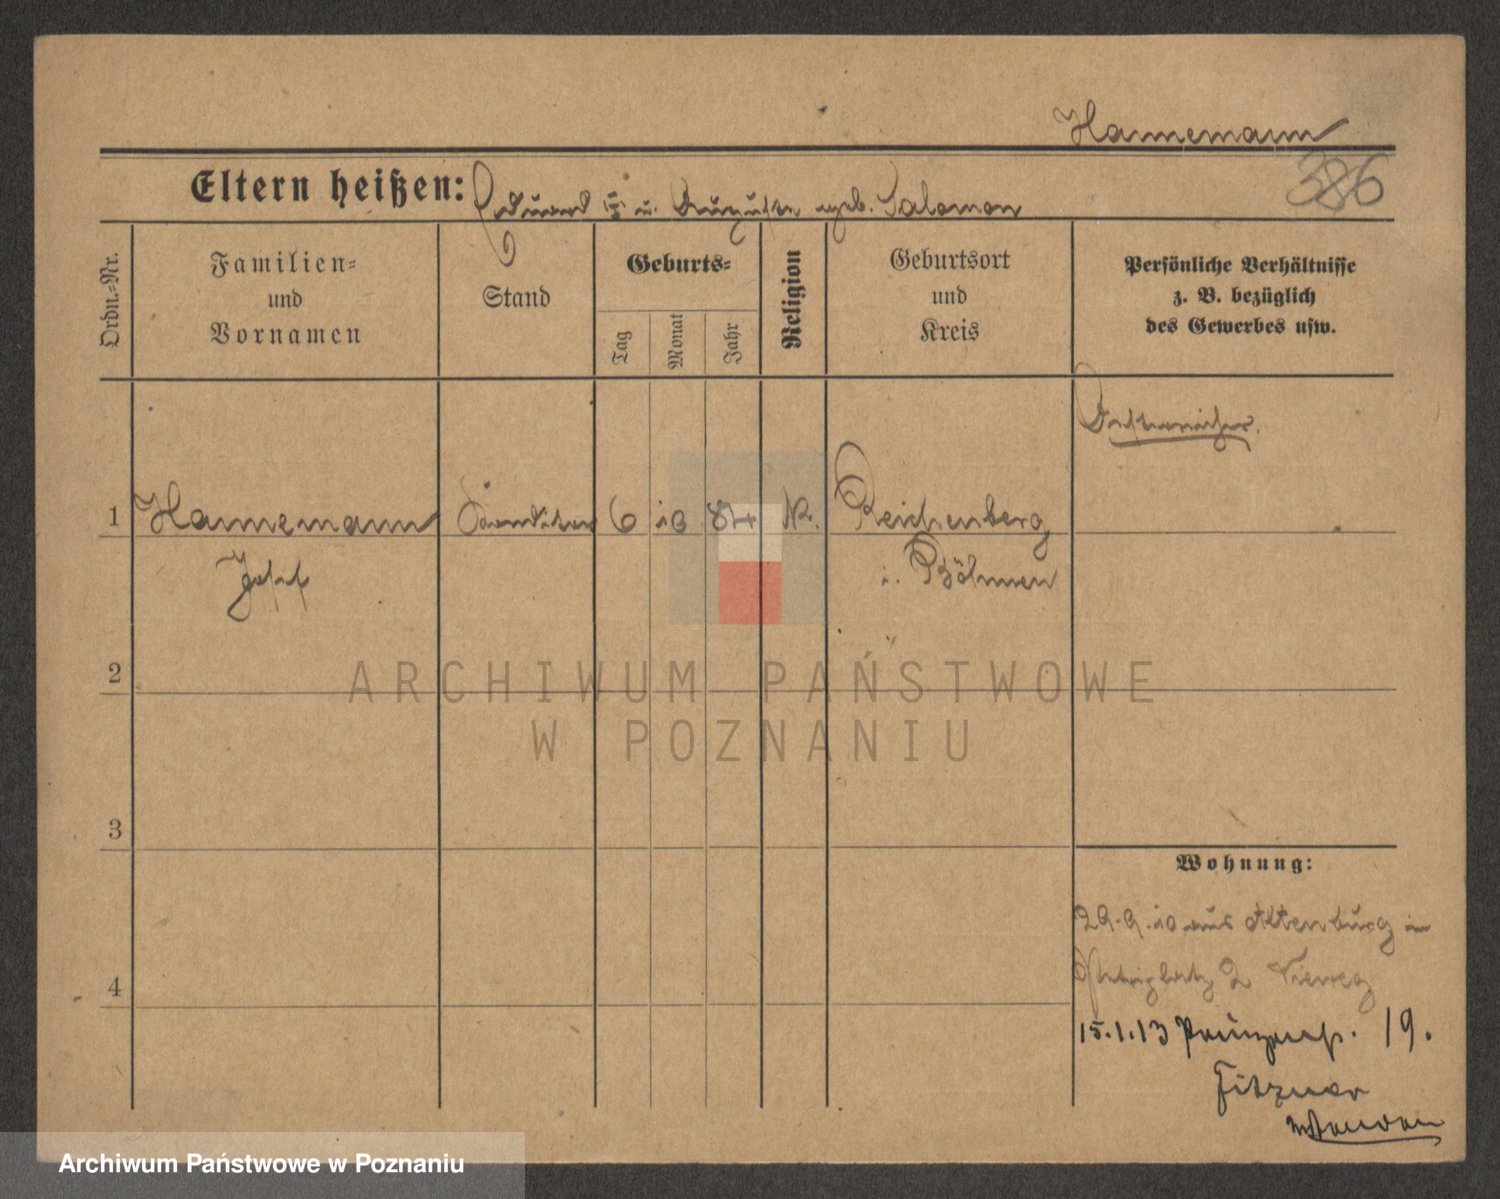 Hannemann
386
Eltern heißen: Eduard u. Auguste geb. Salomon
Ordn.-Nr.
Familien-
und
Vornamen
Stand
Geburts-
Tag
Monat
Jahr
Religion
Geburtsort
und
Kreis
Persönliche Verhältnisse
z. B. bezüglich
des Gewerbes usw.
Österreicher.
1 Hannemann Konditor 6 10 84 K. Reichenberg
Josef i. Böhmen
2
ARCHIWUM PAŃSTWOWE
W POZNANIU
3
Wohnung:
29.9.10 aus Altenburg in
4
2 Vieweg
15.1.13 Prinzenstr. 19.
Fitzner
Archiwum Państwowe w Poznaniu